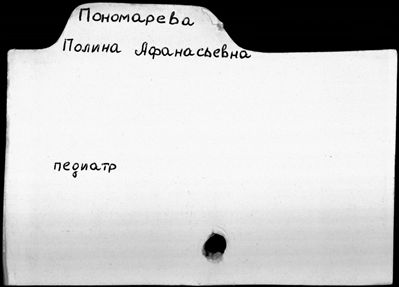 Пономарева
Полина Афанасьевна
педиатр